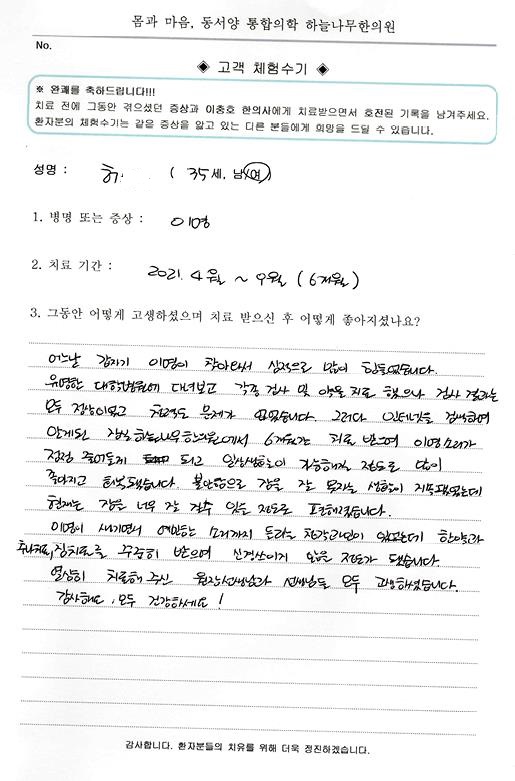 몸과 마음, 동서양 통합의학 하늘나무한의원
No.
◈ 고객 체험수기 ◈
※ 완쾌를 축하드립니다!!!
치료 전에 그동안 겪으셨던 증상과 이충호 한의사에게 치료받으면서 호전된 기록을 남겨주세요.
환자분의 체험수기는 같은 증상을 앓고 있는 다른 분들에게 희망을 드딜 수 있습니다.
성명 : 허 ( 35세, 남/여)
1. 병명 또는 증상 : 이명
2. 치료 기간 : 2021. 4월 ~ 9월 (6개월)
3. 그동안 어떻게 고생하셨으며 치료 받으신 후 어떻게 좋아지셨나요?
어느날 갑자기 이명이 찾아와서 심적으로 많이 힘들었습니다.
유명한 대학병원에 다녀보고 각종 검사 및 약물 치료 했으나 검사 결과는
모두 정상이었고 청력도 문제가 없었습니다. 그러다 인터넷을 검색하며
알게된 잠실 하늘나무한의원에서 6개월간 치료 받으며 이명소리가
점점 줄어들게 되고 일상생활이 가능해질 정도로 많이
좋아지고 회복됐습니다. 불안감으로 잠을 잘 못자는 생활이 지속됐었는데
현재는 잠을 너무 잘 잘수 있을 정도로 편해졌습니다.
이명이 생기면서 예민한 소리까지 들리는 청각과민이 있었는데 한약과
추나치료, 침치료를 꾸준히 받으며 신경쓰이게 않을 정도가 됐습니다.
열심히 치료해 주신 원장선생님과 선생님들 모두 고생하셨습니다.
감사해요, 모두 건강하세요!
감사합니다. 환자분들의 치유를 위해 더욱 정진하겠습니다.